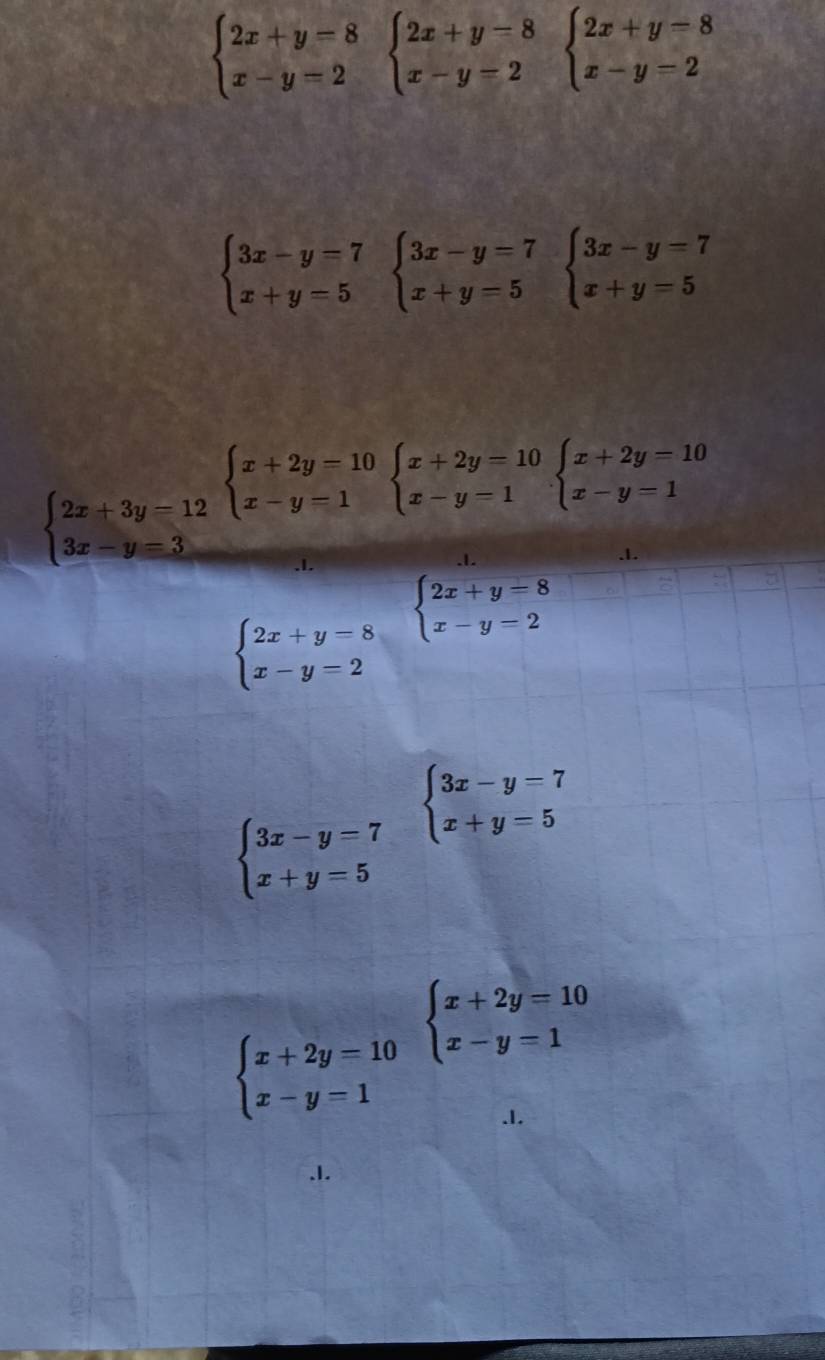 2x + y = 8 2x + y = 8 2x + y = 8
x − y = 2 x − y = 2 x − y = 2
3x − y = 7 3x − y = 7 3x − y = 7
x + y = 5 x + y = 5 x + y = 5
x + 2y = 10 x + 2y = 10 x + 2y = 10
x − y = 1 x − y = 1 x − y = 1
2x + 3y = 12
3x − y = 3
.I. .I. .I.
2x + y = 8
x − y = 2
2x + y = 8
x − y = 2
3x − y = 7
x + y = 5
3x − y = 7
x + y = 5
x + 2y = 10
x − y = 1
x + 2y = 10
x − y = 1
.I.
.I.